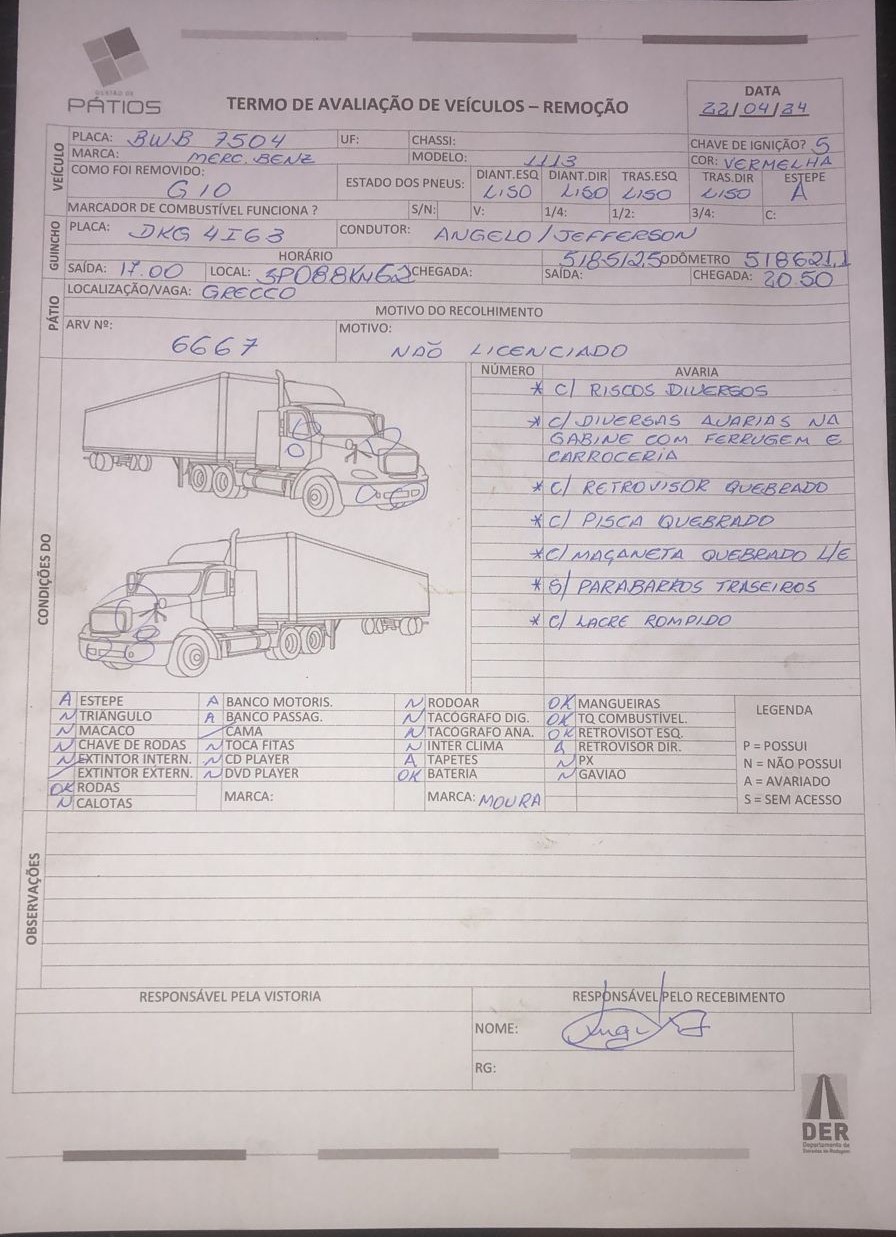 GESTÃO DE
PÁTIOS
TERMO DE AVALIAÇÃO DE VEÍCULOS – REMOÇÃO
DATA
22/04/24
VEÍCULO
PLACA: BWB 7504 UF: CHASSI: CHAVE DE IGNIÇÃO? S
MARCA: MERC. BENZ MODELO: 1113 COR: VERMELHA
COMO FOI REMOVIDO: G10
ESTADO DOS PNEUS: DIANT.ESQ LISO DIANT.DIR LISO TRAS.ESQ LISO TRAS.DIR LISO ESTEPE A
MARCADOR DE COMBUSTÍVEL FUNCIONA ? S/N: V: 1/4: 1/2: 3/4: C:
GUINCHO
PLACA: DKG 4I63 CONDUTOR: ANGELO / JEFFERSON
HORÁRIO ODÔMETRO
SAÍDA: 17.00 LOCAL: SP088KN62 CHEGADA: 20.50 SAÍDA: 518512,5 CHEGADA: 518621,1
PÁTIO
LOCALIZAÇÃO/VAGA: GRECCO
MOTIVO DO RECOLHIMENTO
ARV Nº: 6667 MOTIVO: NÃO LICENCIADO
CONDIÇÕES DO
NÚMERO AVARIA
* C/ RISCOS DIVERSOS
* C/ DIVERSAS AVARIAS NA
GABINE COM FERRUGEM E
CARROCERIA
* C/ RETROVISOR QUEBRADO
* C/ PISCA QUEBRADO
* C/ MAÇANETA QUEBRADO L/E
* S/ PARABARROS TRASEIROS
* C/ LACRE ROMPIDO
A ESTEPE A BANCO MOTORIS. N RODOAR OK MANGUEIRAS
N TRIÂNGULO A BANCO PASSAG. N TACÓGRAFO DIG. OK TQ COMBUSTÍVEL.
N MACACO CAMA N TACOGRAFO ANA. OK RETROVISOT ESQ.
N CHAVE DE RODAS N TOCA FITAS N INTER CLIMA A RETROVISOR DIR.
N EXTINTOR INTERN. N CD PLAYER A TAPETES N PX
EXTINTOR EXTERN. N DVD PLAYER OK BATERIA N GAVIAO
OK RODAS MARCA: MARCA: MOURA
N CALOTAS
LEGENDA
P = POSSUI
N = NÃO POSSUI
A = AVARIADO
S = SEM ACESSO
OBSERVAÇÕES
RESPONSÁVEL PELA VISTORIA RESPONSÁVEL PELO RECEBIMENTO
NOME:
RG:
DER
Departamento de
Estradas de Rodagem